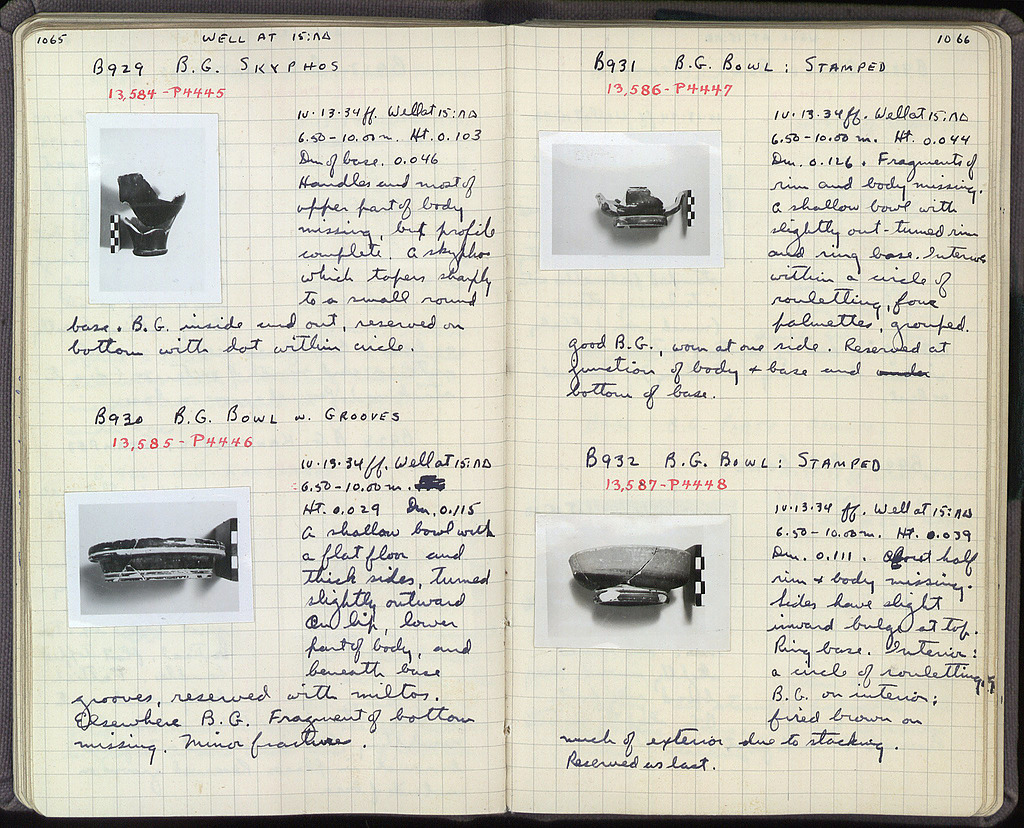 1065 WELL AT 15:ΠΔ
B929 B.G. SKYPHOS
13,584-P4445
IV·13·34 ff. Well at 15:ΠΔ
6.50-10.00 m. Ht. 0.103
Dm of base. 0.046
Handles and most of
upper part of body
missing, but profile
complete. A skyphos
which tapers sharply
to a small round
base. B.G. inside and out, reserved on
bottom with dot within circle.
B930 B.G. BOWL w. GROOVES
13,585-P4446
IV·13·34 ff. Well at 15:ΠΔ
6.50-10.00 m.
Ht. 0.029 Dm. 0.115
A shallow bowl with
a flat floor and
thick sides, turned
slightly outward
On lip, lower
part of body, and
beneath base
grooves, reserved with miltos.
Elsewhere B.G. Fragment of bottom
missing. Minor fractures.
1066
B931 B.G. BOWL: STAMPED
13,586-P4447
IV·13·34 ff. Well at 15:ΠΔ
6.50-10.00 m. Ht. 0.044
Dm. 0.126. Fragments of
rim and body missing.
A shallow bowl with
slightly out-turned rim
and ring base. Interior
within a circle of
rouletting, four
palmettes, grouped.
good B.G., worn at one side. Reserved at
junction of body + base and under
bottom of base.
B932 B.G. BOWL: STAMPED
13,587-P4448
IV·13·34 ff. Well at 15:ΠΔ
6.50-10.00 m. Ht. 0.039
Dm. 0.111. About half
rim + body missing.
Sides have slight
inward bulge at top.
Ring base. Interior:
a circle of rouletting.
B.G. on interior;
fired brown on
much of exterior due to stacking.
Reserved as last.